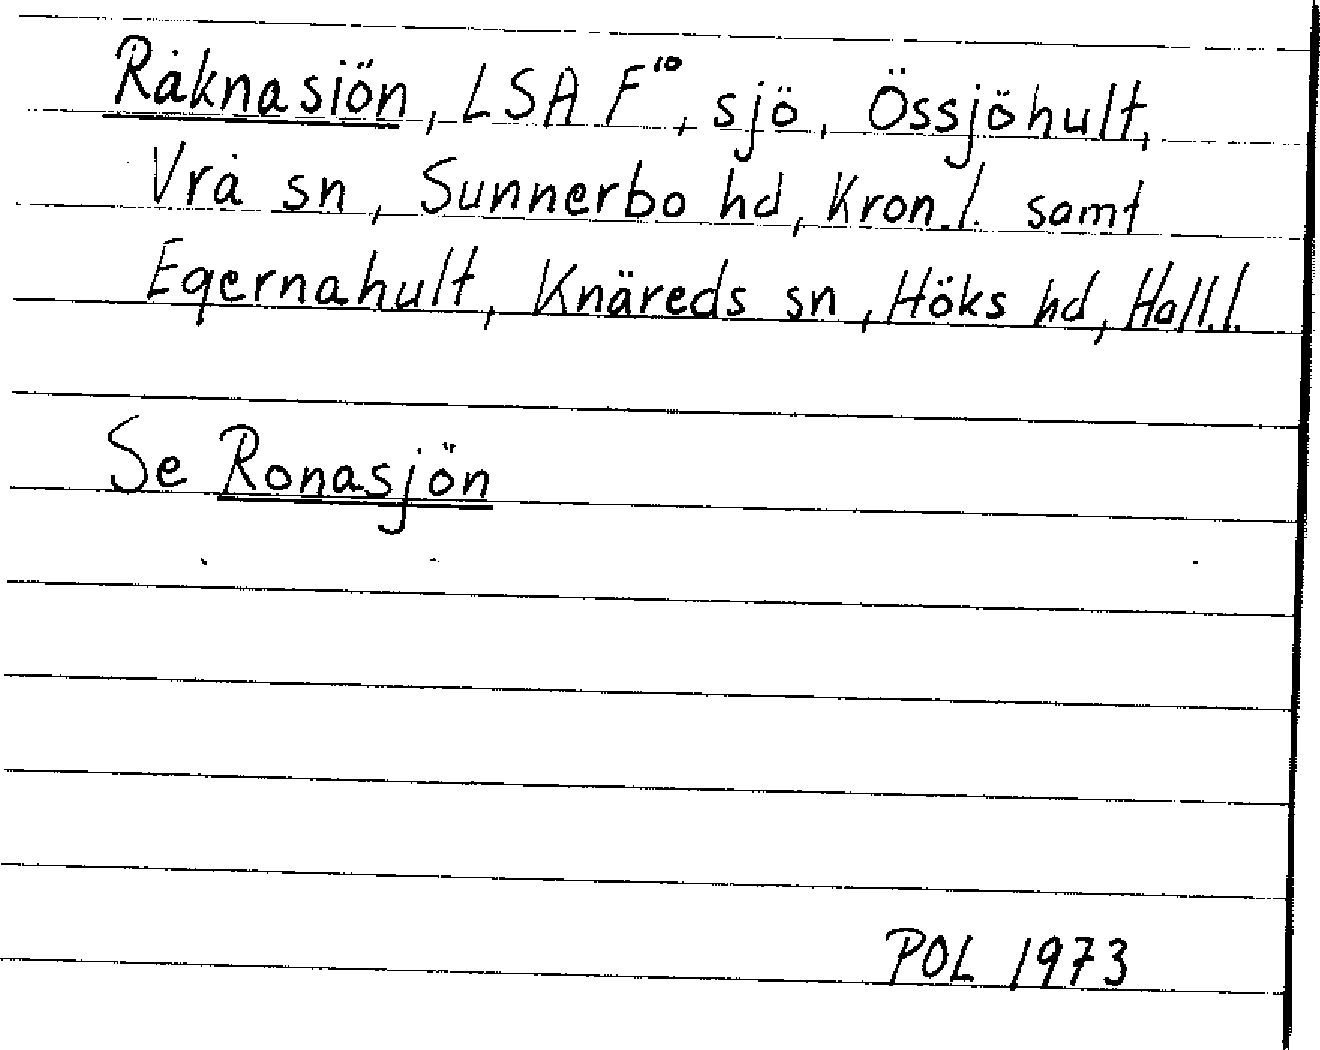 Råknasiön, LSA F¹⁰, sjö, Össjöhult,
Vrå sn, Sunnerbo hd, Kron.l. samt
Eqernahult, Knäreds sn, Höks hd, Hall.l.
Se Ronasjön
POL 1973